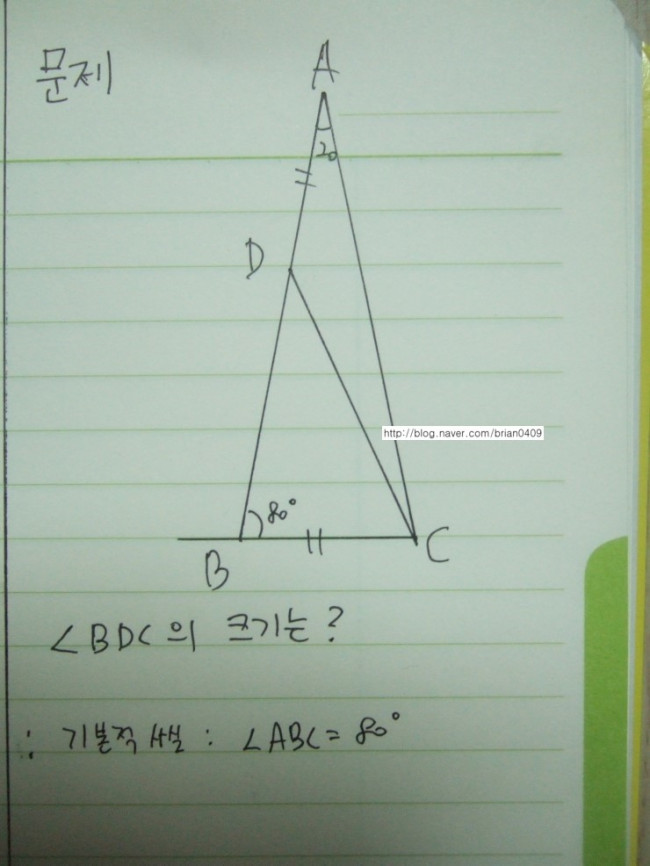 문제
A
20
D
http://blog.naver.com/brian0409
80°
B
C
∠BDC의 크기는?
: 기본적 사실 : ∠ABC = 80°